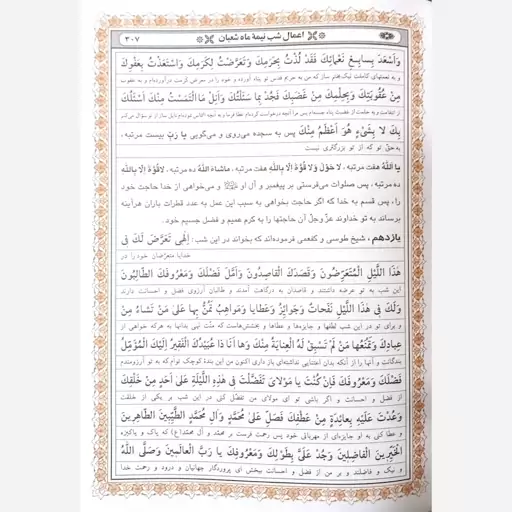 اعمال شب نیمهٔ ماه شعبان
۳۰۷
وَأَسْعَدَ بِسابِغِ نَعْمائِكَ فَقَدْ لُذْتُ بِحَرَمِكَ وَتَعَرَّضْتُ لِكَرَمِكَ وَاسْتَعَذْتُ بِعَفْوِكَ
و به نعمتهای کاملت نیک‌فرجام ساز که من به حریم قدس تو پناه آورده و خود را در معرض کرمت درآورده‌ام و به عفوت
مِنْ عُقُوبَتِكَ وَبِحِلْمِكَ مِنْ غَضَبِكَ فَجُدْ بِما سَئَلْتُكَ وَأَنِلْ مَا الْتَمَسْتُ مِنْكَ أَسْئَلُكَ
بِكَ لا بِشَيْءٍ هُوَ أَعْظَمُ مِنْكَ پس به سجده می‌روی و می‌گویی یا رَبِّ بیست مرتبه،
به حق تو که از تو بزرگتری نیست
یا اَللهُ هفت مرتبه، لا حَوْلَ وَلا قُوَّةَ إِلّا بِاللهِ هفت مرتبه، ماشاءَ اللهُ ده مرتبه، لاقُوَّةَ إِلّا بِاللهِ
ده مرتبه، پس صلوات می‌فرستی بر پیغمبر و آل او ﷺ و می‌خواهی از خدا حاجت خود
را، پس قسم به خدا که اگر حاجت بخواهی به سبب این عمل به عدد قطرات باران هرآینه
برساند به تو خداوند عزّوجلّ آن حاجتها را به کرم عمیم و فضل جسیم خود.
یازدهم، شیخ طوسی و کفعمی فرموده‌اند که بخواند در این شب: إِلٰهِي تَعَرَّضَ لَكَ في
خدایا متعرّضان خود را در
هٰذَا اللَّيْلِ الْمُتَعَرِّضُونَ وَقَصَدَكَ الْقاصِدُونَ وَأَمَّلَ فَضْلَكَ وَمَعْرُوفَكَ الطّالِبُونَ
این شب به تو عرضه داشتند و قاصدان به درگاهت آمدند و طالبان آرزوی فضل و احسانت دارند
وَلَكَ في هٰذَا اللَّيْلِ نَفَحاتٌ وَجَوائِزُ وَعَطايا وَمَواهِبُ تَمُنُّ بِها عَلىٰ مَنْ تَشاءُ مِنْ
و برای تو در این شب لطفها و جایزه‌ها و عطاها و بخششهاست که منّت نهی بدانها به هرکه خواهی از
عِبادِكَ وَتَمْنَعُها مَنْ لَمْ تَسْبِقْ لَهُ الْعِنايَةُ مِنْكَ وَها أَنَا ذا عُبَيْدُكَ الْفَقِيرُ إِلَيْكَ الْمُؤَمِّلُ
بندگانت و آنها را از آنکه بدان اعتنایی نداشته‌ای باز داری اکنون من این بندهٔ کوچک توأم که به تو آرزومندم
فَضْلَكَ وَمَعْرُوفَكَ فَإِنْ كُنْتَ يا مَوْلايَ تَفَضَّلْتَ في هٰذِهِ اللَّيْلَةِ عَلىٰ أَحَدٍ مِنْ خَلْقِكَ
از فضل و احسانت و اگر باشی تو ای مولای من تفضّل کنی در این شب بر یکی از خلقت
وَعُدْتَ عَلَيْهِ بِعائِدَةٍ مِنْ عَطْفِكَ فَصَلِّ عَلىٰ مُحَمَّدٍ وَآلِ مُحَمَّدٍ الطَّيِّبِينَ الطّاهِرِينَ
و عطا کنی به او جایزه‌ای از مهربانی خود پس رحمت فرست بر محمّد و آل محمّد(ع) که پاک و پاکیزه
الْخَيِّرِينَ الْفاضِلِينَ وَجُدْ عَلَيَّ بِطَوْلِكَ وَمَعْرُوفِكَ يا رَبَّ الْعالَمِينَ وَصَلَّى اللهُ
و نیک و فاضلند و بر من از فضل و احسانت ببخش ای پروردگار جهانیان و درود و رحمت خدا